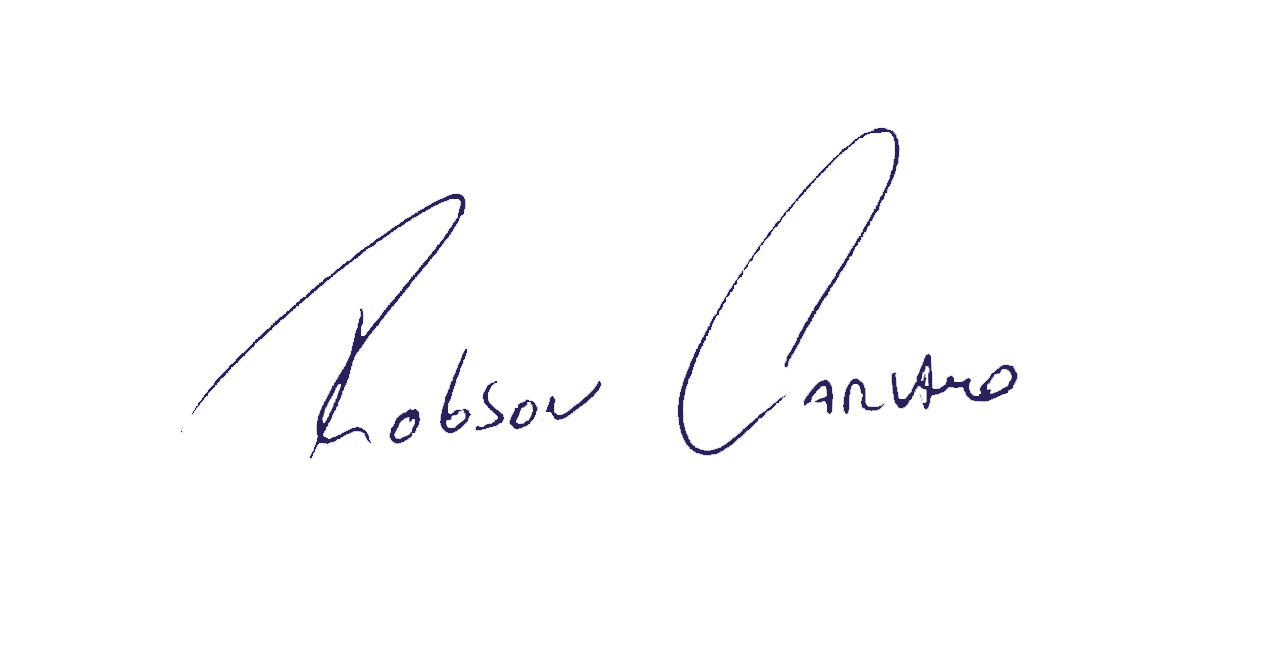 Robson Carvalho